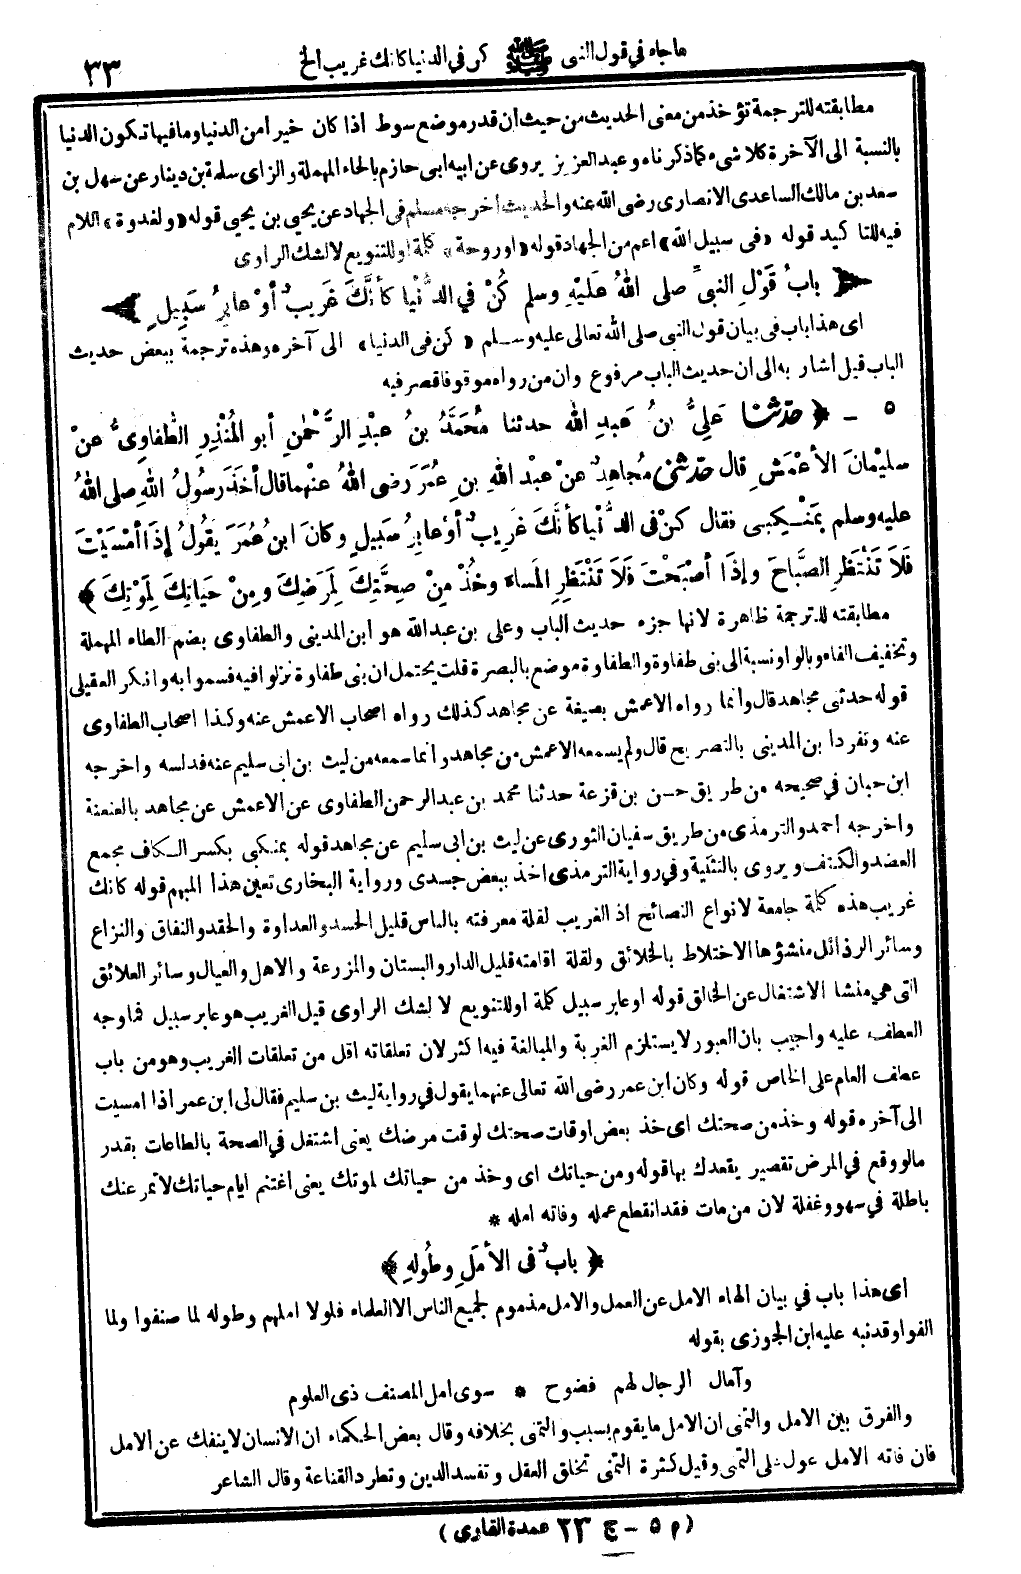 ما جاء في قول النبي ﷺ كن في الدنيا كانك غريب الخ ٣٣
مطابقته للترجمة تؤخذ من معنى الحديث من حيث أن قدر موضع سوط اذا كان خيرا من الدنيا وما فيها تكون الدنيا
بالنسبة الى الآخرة كلا شيء كما ذكرناه وعبد العزيز يروى عن ابيه ابى حازم بالحاء المهملة والزاى سلمة بن دينار عن سهل بن
سعد بن مالك الساعدى الانصارى رضى الله عنه والحديث اخرجه مسلم فى الجهاد عن يحيى بن يحيى قوله «ولغدوة» اللام
فيه للتا كيد قوله «فى سبيل الله» اعم من الجهاد قوله «او روحة» كلمة او للتنويع لا لشك الراوى
﴿ بابُ قَوْلِ النبيِّ صلى اللهُ عَلَيْهِ وسلم كُنْ في الدُّنْيا كأنَّكَ غَرِيبٌ أوْ عابِرُ سَبِيلٍ ﴾
اى هذا باب فى بيان قول النبى صلى الله تعالى عليه وسلم «كن فى الدنيا» الى آخره وهذه ترجمة ببعض حديث
الباب قيل أشار به الى ان حديث الباب مرفوع وان من رواه موقوفا قصر فيه
٥ - ﴿ حدّثنا عَلِيُّ بنُ عَبدِ الله حدثنا مُحَمَّدُ بنُ عبْدِ الرَّحْمٰنِ أبو المُنْذِرِ الطُّفاوِىُّ عنْ
سليْمانَ الأعْمَشِ قال حدّثنى مُجاهِدٌ عنْ عبْد اللهِ بنِ عُمَرَ رضى اللهُ عنْهما قال أخَذَ رسُولُ اللهِ صلى اللهُ
عليه وسلم بِمَنْكِبى فقال كنْ فى الدُّنْيا كأنَّكَ غَرِيبٌ أوْ عابِرُ سَبيلٍ وكانَ ابنُ عُمَرَ يقُولُ إذَا أمْسَيْتَ
فَلاَ تَنْتَظِرِ الصَّباحَ وإذَا أصْبَحْتَ فَلاَ تَنْتَظِرِ المَساءَ وخُذْ مِنْ صِحَّتِكَ لِمَرَضِكَ ومِنْ حَياتِكَ لِمَوْتِكَ ﴾
مطابقته للترجمة ظاهرة لانها جزء حديث الباب وعلى بن عبد الله هو ابن المدينى والطفاوى بضم الطاء المهملة
وتخفيف الفاء وبالواو نسبة الى بنى طفاوة والطفاوة موضع بالبصرة قلت يحتمل ان بنى طفاوة نزلوا فيه فسموا به وانكر العقيلى
قوله حدثنى مجاهد قال وانما رواه الاعمش بصيغة عن مجاهد كذلك رواه اصحاب الاعمش عنه وكذا اصحاب الطفاوى
عنه وتفرد ابن المدينى بالتصريح قال ولم يسمعه الاعمش من مجاهد وانما سمعه من ليث بن ابى سليم عنه فدلسه واخرجه
ابن حبان فى صحيحه من طريق حسن بن قزعة حدثنا محمد بن عبد الرحمن الطفاوى عن الاعمش عن مجاهد بالعنعنة
واخرجه احمد والترمذى من طريق سفيان الثورى عن ليث بن ابى سليم عن مجاهد قوله بمنكبى بكسر الكاف مجمع
العضد والكتف ويروى بالتثنية وفى رواية الترمذى اخذ ببعض جسدى ورواية البخارى تعين هذا المبهم قوله كانك
غريب هذه كلمة جامعة لانواع النصائح اذ الغريب لقلة معرفته بالناس قليل الحسد والعداوة والحقد والنفاق والنزاع
وسائر الرذائل منشؤها الاختلاط بالخلائق ولقلة اقامته قليل الدار والبستان والمزرعة والاهل والعيال وسائر العلائق
التى هي منشا الاشتغال عن الخالق قوله او عابر سبيل كلمة او للتنويع لا لشك الراوى قيل الغريب هو عابر سبيل فما وجه
العطف عليه واجيب بان العبور لا يستلزم الغربة والمبالغة فيه اكثر لان تعلقاته اقل من تعلقات الغريب وهو من باب
عطف العام على الخاص قوله وكان ابن عمر رضى الله تعالى عنهما يقول في رواية ليث بن سليم فقال لى ابن عمر اذا امسيت
الى آخره قوله وخذ من صحتك اى خذ بعض اوقات صحتك لوقت مرضك يعنى اشتغل في الصحة بالطاعات بقدر
ما لو وقع في المرض تقصير يقعدك بها قوله ومن حياتك اى وخذ من حياتك لموتك يعنى اغتنم ايام حياتك لا تمر عنك
باطلة في سهو وغفلة لان من مات فقد انقطع عمله وفاته امله *
﴿ بابٌ فى الأمَلِ وطُولِهِ ﴾
اى هذا باب في بيان الهاء الامل عن العمل والامل مذموم لجميع الناس الا العلماء فلولا املهم وطوله لما صنفوا ولما
الفوا وقد نبه عليه ابن الجوزى بقوله
وآمال الرجال لهم فضوح * سوى امل المصنف ذى العلوم
والفرق بين الامل والتمنى ان الامل ما يقوم بسبب والتمنى بخلافه وقال بعض الحكماء ان الانسان لا ينفك عن الامل
فان فاته الامل عول على التمنى وقيل كثرة التمنى تخلق العقل وتفسد الدين وتطرد القناعة وقال الشاعر
(م ٥ - ج ٢٣ عمدة القارى)